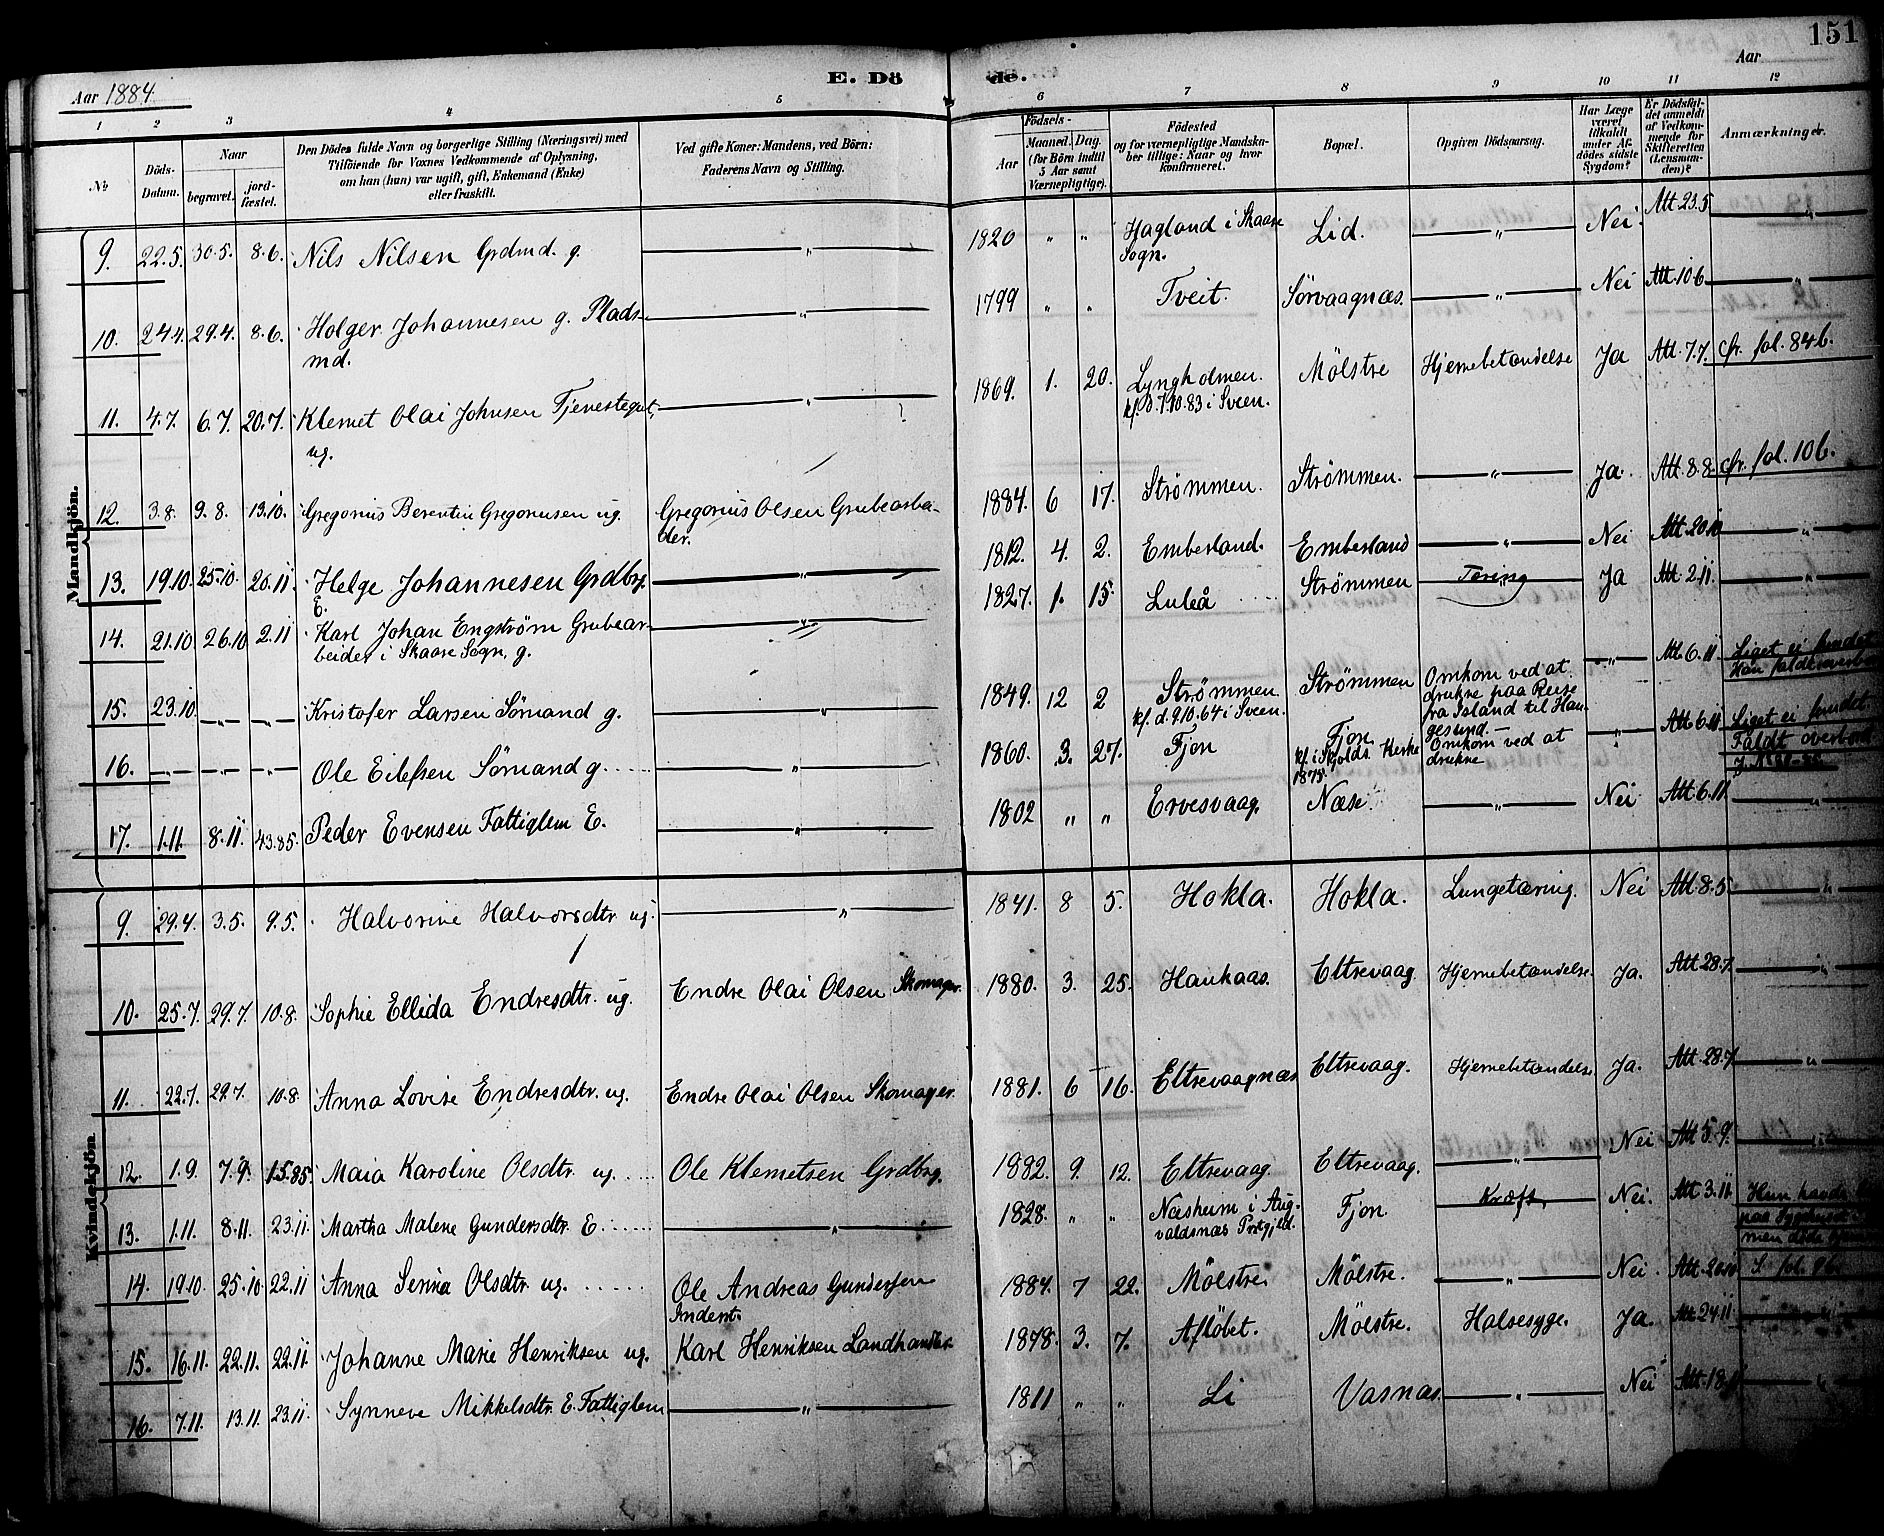 151
Aar 1884.
E. Dö
de.
Aar
1 2 3 4 5 6 7 8 9 10 11 12
№
Döds-Datum.
Naar
begravet.
jord-fæstet.
Den Dödes fulde Navn og borgerlige Stilling (Næringsvei) med
Tilföiende for Voxnes Vedkommende af Oplysning,
om han (hun) var ugift, gift, Enkemand (Enke)
eller fraskilt.
Ved gifte Koner: Mandens, ved Börn:
Faderens Navn og Stilling.
Födsels-
Aar
Maaned. Dag.
(for Börn indtil
5 Aar samt
Værnepligtige).
Födested
og for værnepligtige Mandskaber tillige: Naar og hvor
konfirmeret.
Bopæl.
Opgiven Dödsaarsag.
Har Læge
været
tilkaldt
under Afdödes sidste
Sygdom?
Er Dödsfaldet anmeldt
af Vedkommende for
Skifteretten
(Lensmanden)?
Anmærkninger.
Mandkjön.
9. 22.5. 30.5. 8.6. Nils Nilsen Grdmd. g. — " — 1820 " " Hagland i Skaare Sogn. Lid. — " — Nei. Att 23.5 — " —
10. 24.4. 29.4. 8.6. Holger Johannesen g. Pladsmd. — " — 1799 " " Tveit. Sørvaagnæs. — " — Nei Att. 10.6. — " —
11. 4.7. 6.7. 20.7. Klemet Olai Johnsen Tjenestegut, ug. — " — 1869. 1. 20. Lyngholmen. kf. d. 7.10.83 i Sveen. Mølstre Hjernebetændelse Ja Att. 7.7. cfr. fol. 84 b.
12. 3.8. 9.8. 13.10. Gregorius Berentin Gregoriusen ug. Gregorius Olsen Grubearbeider. 1884. 6 17. Strømmen. Strømmen. — " — Ja. Att 8.8. cfr. fol. 10 b.
13. 19.10. 25.10 20.11. Helge Johannesen Grdbrg. E. — " — 1812. 4. 2. Emberland. Emberland — " — Nei Att. 20.10 — " —
14. 21.10 26.10 2.11 Karl Johan Engstrøm Grubearbeider i Skaare Sogn, g. — " — 1827. 1. 15. Luleå Strømmen Tæring Ja Att 2.11. — " —
15. 23.10. — " — — " — Kristofer Larsen Sømand g. — " — 1849. 12 2 Strømmen kf. d. 9.10.64 i Sveen. Strømmen Omkom ved at drukne paa Reise fra Island til Haugesund. — " — Att. 6.11 Liget ei fundet. Han faldt overbord
16. — " — — " — Ole Eilefsen Sømand g. — " — 1860. 3. 27. Fjon Fjon kf. i Skjolds Kirke 1875. Omkom ved at drukne — " — Att 6.11 Liget ei fundet. Faldt overbord
17. 1.11. 8.11. 4.3.85. Peder Evensen Fattiglem E. — " — 1802 " " Ervesvaag. Næse — " — Nei Att 6.11. — " —
Kvindekjön.
9. 29.4. 3.5. 9.5. Halvorine Halvorsdtr. ug. — " — 1841. 8 5. Hokla. Hokla. Lungetæring. Nei Att. 8.5. — " —
10. 25.7. 29.7. 10.8. Sophie Ellida Endresdtr. ug. Endre Olai Olsen Skomager. 1880. 3. 25. Haukaas. Eltrevaag Hjernebetændelse. Ja. Att 28.7. — " —
11. 22.7. 29.7. 10.8. Anna Lovise Endresdtr. ug. Endre Olai Olsen Skomager. 1881. 6 16. Eltrevaagnæs Eltrevaag. Hjernebetændelse Ja. Att 28.7. — " —
12. 1.9. 7.9. 1.5.85. Maia Karoline Olsdtr. ug. Ole Klemetsen Grdbrg. 1882. 9. 12. Eltrevaag. Eltrevaag. — " — Nei Att 5.9. — " —
13. 1.11. 8.11. 23.11. Martha Malene Gundersdtr. E. — " — 1828. " " Næshum i Augvaldsnæs Prstgjld. Fjon. Kræft. Nei. Att 3.11. Hun havde paa Sygehuset men døde
14. 19.10. 25.10. 22.11 Anna Serina Olsdtr. ug. Ole Andreas Gundersen Inderst. 1884. 7 22. Mølstre. Mølstre. — " — Nei. Att 20.10 S. fol.
15. 16.11. 22.11. 22.11. Johanne Marie Henriksen ug. Karl Henriksen Landhandler. 1878. 3. 7. Afløbet. Mølstre. Halsesyge. Ja. Att 24.11. — " —
16. 7.11. 13.11. 23.11. Synneve Mikkelsdtr. E. Fattiglem — " — 1811 " " Li Vasnæs. — " — Nei — " —